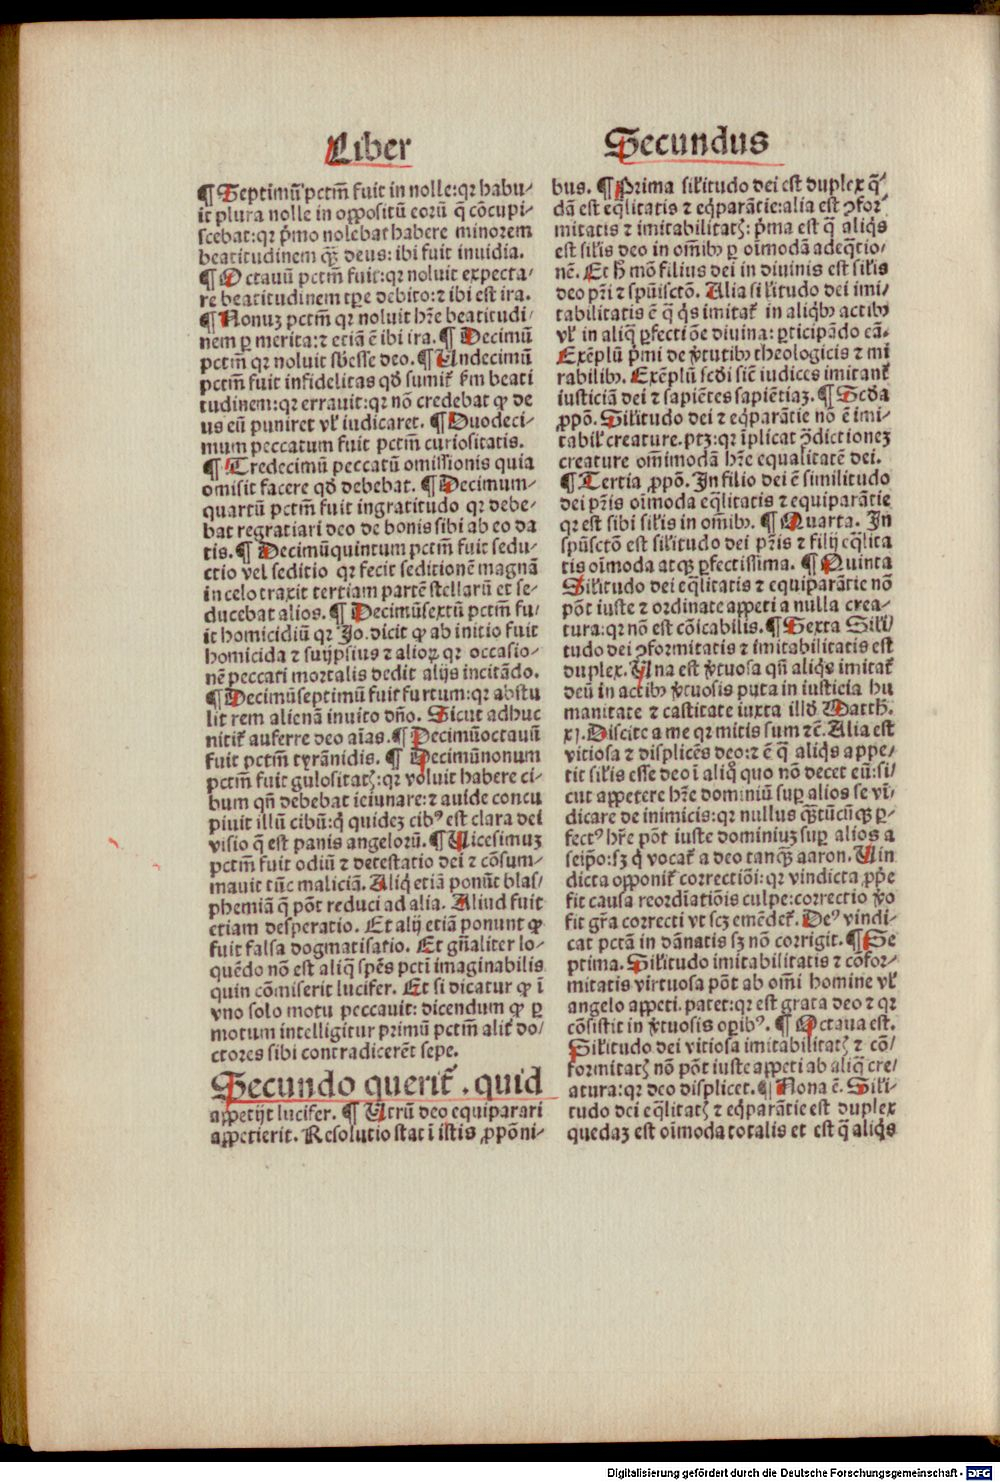 Liber
Secundus
¶ Septimū pctm̄ fuit in nolle: qꝛ habu-
it plura nolle in oppositū eorū q̄ cōcupi-
scebat: qꝛ p̄mo nolebat habere minorem
beatitudinem qꝫ̄ deus: ibi fuit inuidia.
¶ Octauū pctm̄ fuit: qꝛ noluit expecta-
re beatitudinem tꝑe debito: ⁊ ibi est ira.
¶ Nonuꝫ pctm̄ qꝛ noluit hr̄e beatitudi-
nem ꝑ merita: ⁊ etiā ē ibi ira. ¶ Decimū
pctm̄ qꝛ noluit sb̄esse deo. ¶ Undecimū
pctm̄ fuit infidelitas qd̄ sumit̄ ẜm beati
tudinem: qꝛ errauit: qꝛ nō credebat ꝙ de
us eū puniret vl̄ iudicaret. ¶ Duodeci-
mum peccatum fuit pctm̄ curiositatis.
¶ Tredecimū peccatū omissionis quia
omisit facere qd̄ debebat. ¶ Decimum-
quartū pctm̄ fuit ingratitudo qꝛ debe-
bat regratiari deo de bonis sibi ab eo da
tis. ¶ Decimūquintum pctm̄ fuit sedu-
ctio vel seditio qꝛ fecit seditionē magnā
in celo traxit tertiam partē stellarū et se-
ducebat alios. ¶ Decimūsextū pctm̄ fu-
it homicidiū qꝛ Jo. dicit ꝙ ab initio fuit
homicida ⁊ suijpsius ⁊ alioꝝ qꝛ occasio-
nē peccati mortalis dedit alijs incitādo.
¶ Decimūseptimū fuit furtum: qꝛ abstu
lit rem alienā inuito dn̄o. Sicut adhuc
nitit̄ auferre deo aīas. ¶ Decimūoctauū
fuit pctm̄ tyrānidis. ¶ Decimūnonum
pctm̄ fuit gulositatꝭ: qꝛ voluit habere ci-
bum qn̄ debebat ieiunare: ⁊ auide concu
piuit illū cibū: q̄ quideꝫ cibꝰ est clara dei
visio q̄ est panis angelorū. ¶ Uicesimuꝫ
pctm̄ fuit odiū ⁊ detestatio dei ⁊ cōsum-
mauit tūc maliciā. Aliq̄ etiā ponūt blas-
phemiā q̄ pōt reduci ad alia. Aliud fuit
etiam desperatio. Et alij etiā ponunt ꝙ
fuit falsa dogmatisatio. Et gn̄aliter lo-
quēdo nō est aliq̄ spēs pcti imaginabilis
quin cōmiserit lucifer. Et si dicatur ꝙ ī
vno solo motu peccauit: dicendum ꝙ ꝑ
motum intelligitur primū pctm̄ alit̄ do-
ctores sibi contradicerēt sepe.
Secundo querit̄. quid
appetijt lucifer. ¶ Utrū deo equiparari
appetierit. Resolutio stat ī istis ꝓpōni-
bus. ¶ Prima sil̄itudo dei est duplex q̄-
dā est eq̄litatis ⁊ eq̄parātie: alia est ꝯfor-
mitatis ⁊ imitabilitatꝭ: p̄ma est q̄ aliq̄s
est sil̄is deo in om̄ibꝫ ꝑ oīmodā adeq̄tio-
nē. Et h̄ mō filius dei in diuinis est sil̄is
deo pr̄i ⁊ spūisctō. Alia sil̄itudo dei imi-
tabilitatis ē q̄ q̄s imitat̄ in aliq̄bꝫ actibꝫ
vl̄ in aliq̄ ꝑfectiōe diuina: ꝑticipādo eā.
Exēplū p̄mi de v̄tutibꝫ theologicis ⁊ mi
rabilibꝫ. Exēplū scd̄i sic̄ iudices imitant̄
iusticiā dei ⁊ sapiētes sapiētiaꝫ. ¶ Scd̄a
ꝓpō. Sil̄itudo dei ⁊ eq̄parātie nō ē imi-
tabil̄ creature. ptꝫ: qꝛ īplicat ꝯ̄dictioneꝫ
creature om̄imodā hr̄e equalitatē dei.
¶ Tertia ꝓpō. In filio dei ē similitudo
dei pr̄is oīmoda eq̄litatis ⁊ equiparātie
qꝛ est sibi sil̄is in om̄ibꝫ. ¶ Quarta. In
spūsctō est sil̄itudo dei pr̄is ⁊ filij eq̄lita
tis oīmoda atqꝫ ꝑfectissima. ¶ Quinta
Sil̄itudo dei eq̄litatis ⁊ equiparātie nō
pōt iuste ⁊ ordinate appeti a nulla crea-
tura: qꝛ nō est cōicabilis. ¶ Sexta Sil̄i-
tudo dei ꝯformitatis ⁊ imitabilitatis est
duplex. Una est v̄tuosa qn̄ aliq̄s imitat̄
deū in actibꝫ v̄tuosis puta in iusticia hu
manitate ⁊ castitate iuxta illd̄ Matth̄.
xj. Discite a me qꝛ mitis sum ⁊c̄. Alia est
vitiosa ⁊ displicēs deo: ⁊ ē q̄ aliq̄s appe-
tit sil̄is esse deo ī aliq̊ quo nō decet eū: si-
cut appetere hr̄e dominiū suꝑ alios se vī-
dicare de inimicis: qꝛ nullus qꝫ̄tūcūqꝫ ꝑ-
fectꝰ hr̄e pōt iuste dominiuꝫ suꝑ alios a
seip̄o: sꝫ q̄ vocat̄ a deo tanqꝫ̄ aaron. Uin
dicta opponit̄ correctiōi: qꝛ vindicta ꝓp̄e
fit causa reordīatiōis culpe: correctio v̄o
fit gr̄a correcti vt scꝫ emēdet̄. Deꝰ vindi-
cat pctā in dānatis sꝫ nō corrigit. ¶ Se
ptima. Sil̄itudo imitabilitatis ⁊ cōfor-
mitatis virtuosa pōt ab om̄i homine vl̄
angelo appeti. patet: qꝛ est grata deo ⁊ qꝛ
cōsistit in v̄tuosis oꝑibꝰ. ¶ Octaua est.
Sil̄itudo dei vitiosa imitabilitatꝭ ⁊ cō-
formitatꝭ nō pōt iuste appeti ab aliq̄ cre-
atura: qꝛ deo displicet. ¶ Nona ē. Sil̄i-
tudo dei eq̄litatꝭ ⁊ eq̄parātie est duplex
quedaꝫ est oīmoda totalis et est q̄ aliq̄s
Digitalisierung gefördert durch die Deutsche Forschungsgemeinschaft - DFG